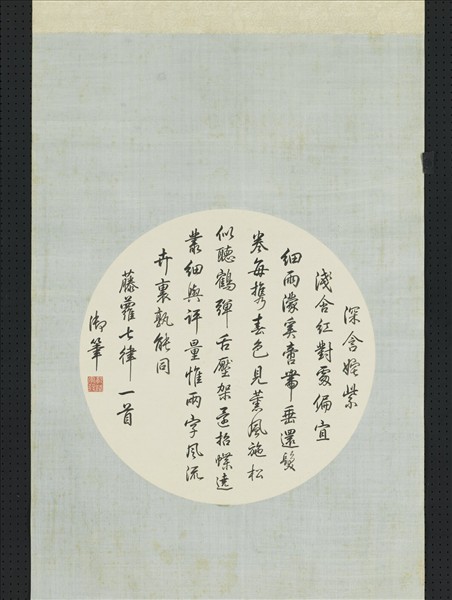 深含姹紫
淺含紅對處偏宜
細雨濛奚啻帶垂還
卷每攜春色見薰風施松
似聽鶴彈舌壓架還招蝶遶
叢細與評量惟兩字風流
卉裏孰能同
藤蘿七律一首
御筆